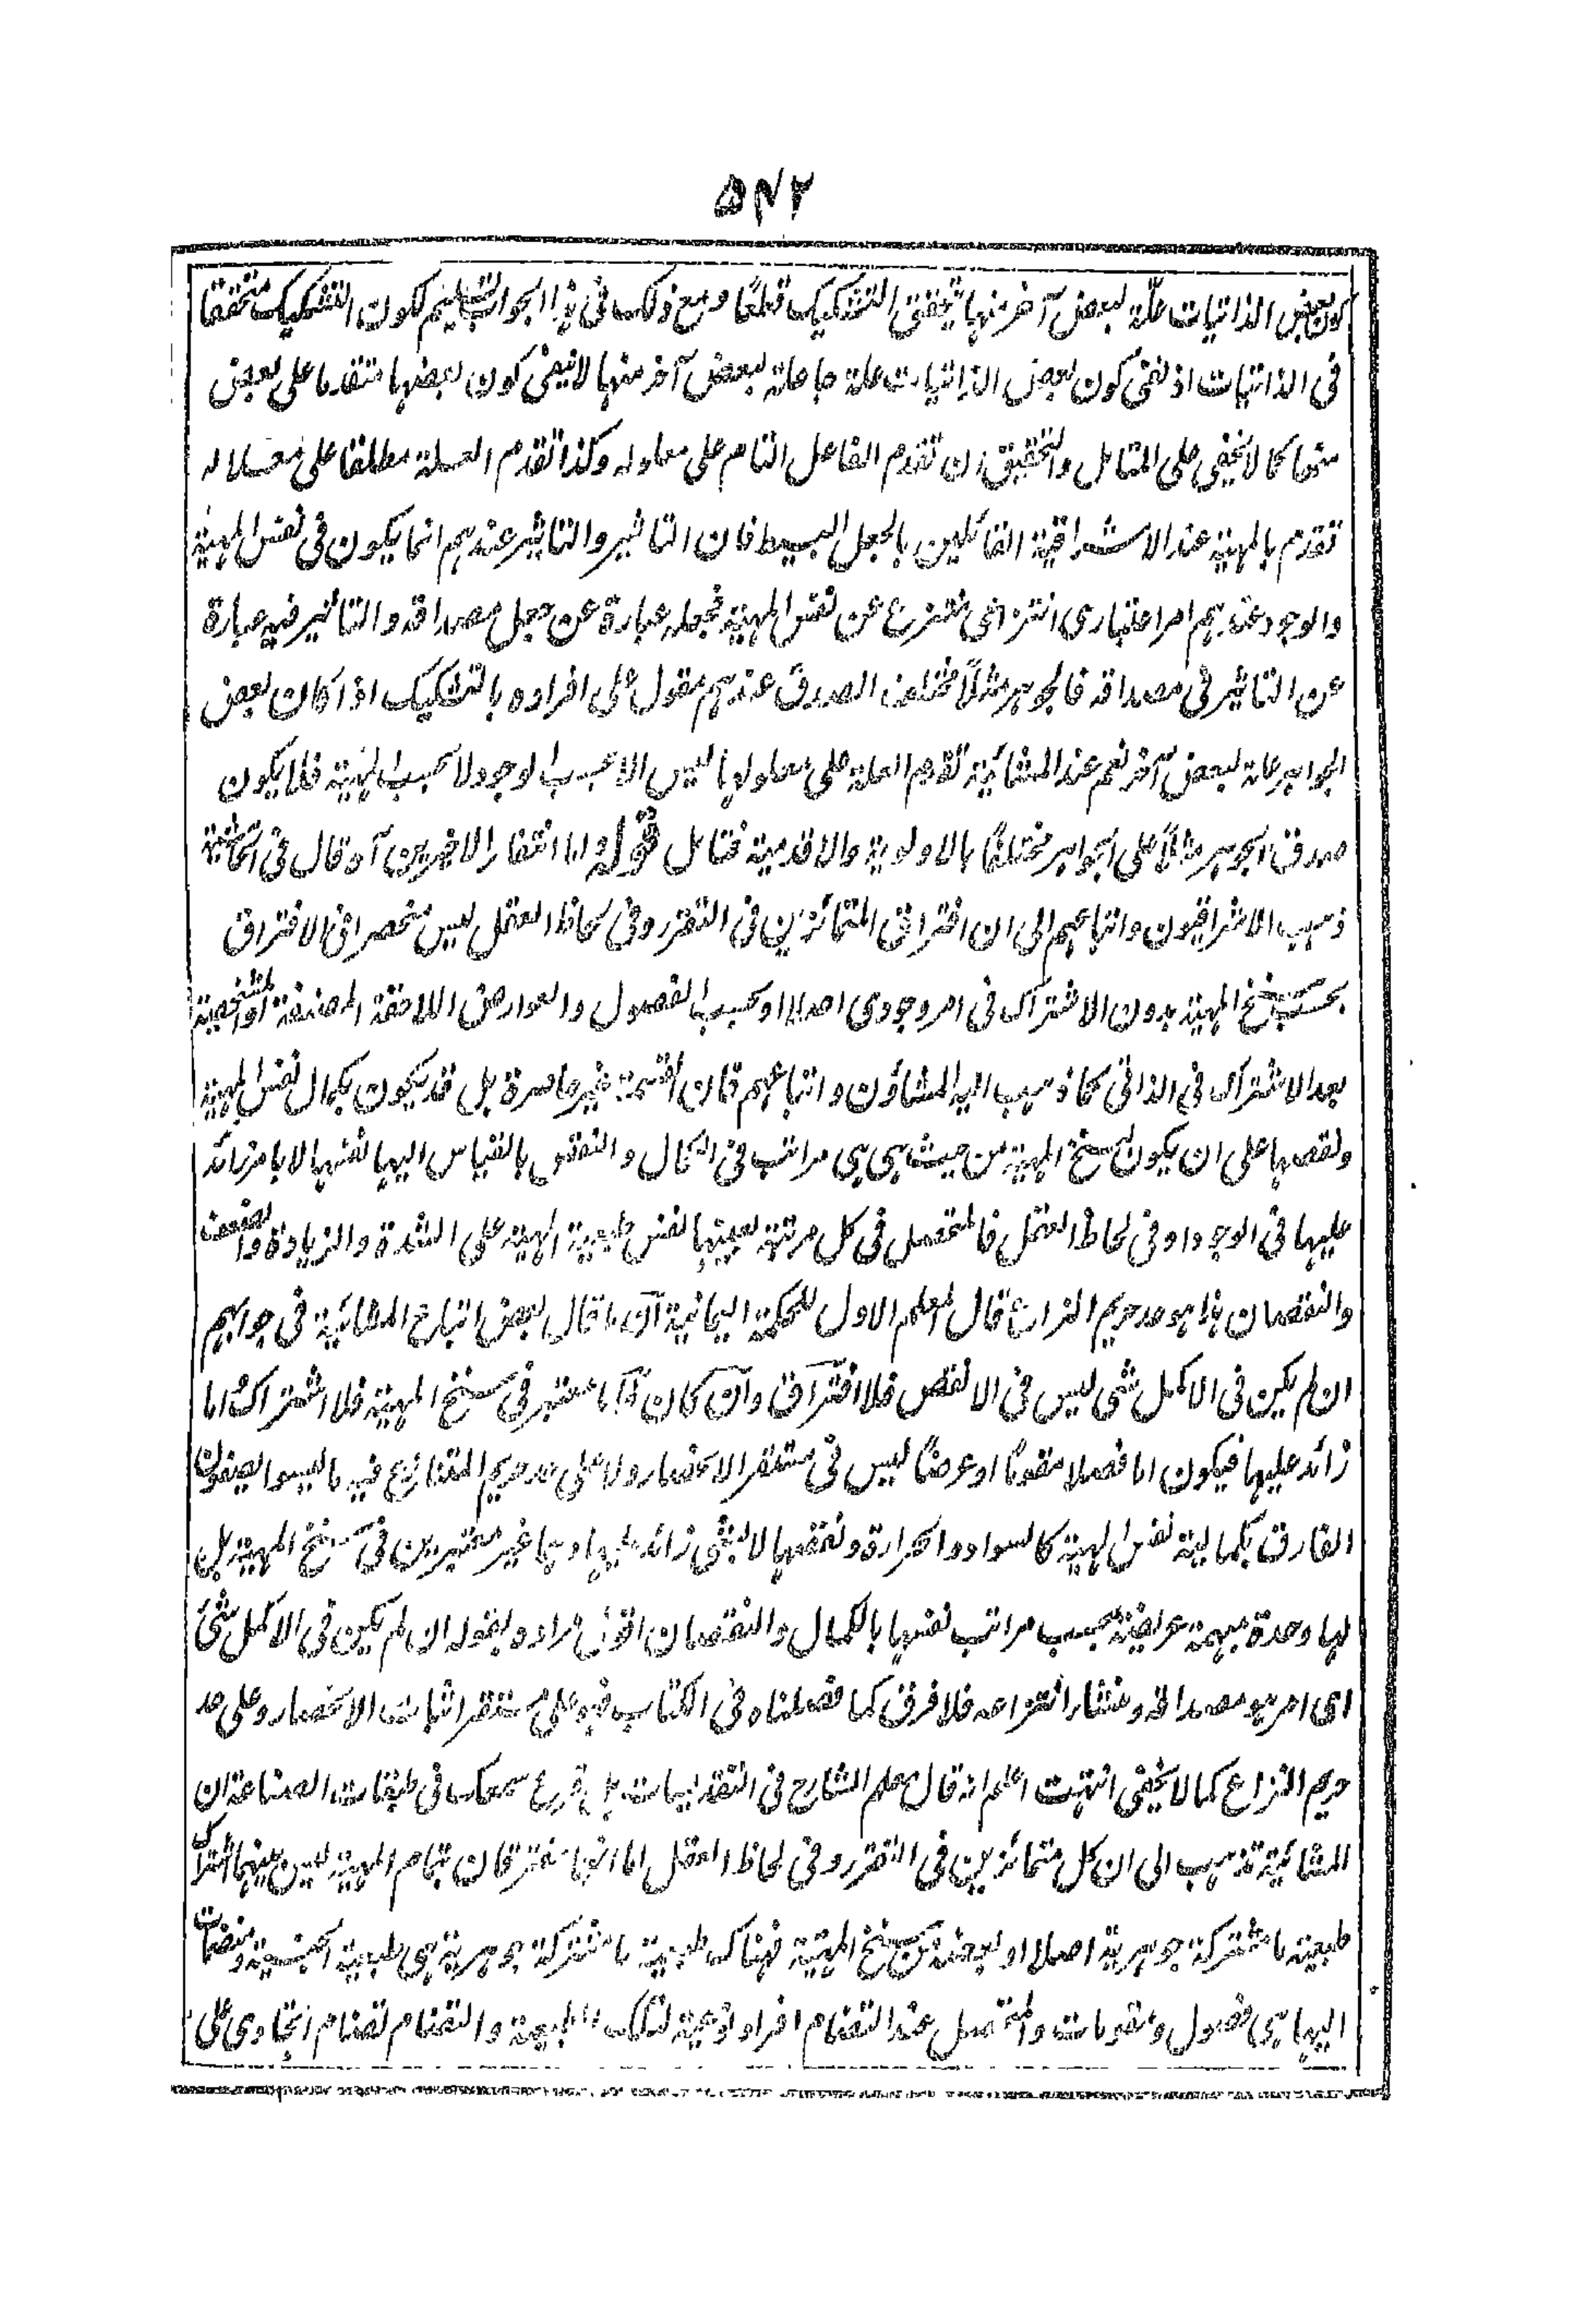 ۵۴۲
كون بعض الذاتيات علّة لبعض آخر منها يتحقق التشكيك قطعًا ومع ذلك فى هذا الجواب تسليم لكون التشكيك متحققا
فى الذاتيات اذ نفى كون بعض الذاتيات علة جاعلة لبعض آخر منها لا ينفى كون بعضها متقدما على بعض
منها كما لا يخفى على المتامل والتحقيق ان تقدم الفاعل التام على معلوله وكذا تقدم العلة مطلقا على معلوله
تقدم بالمهية عند الاشراقية القائلين بالجعل البسيط فان التاثير والتاثير عندهم انما يكون فى نفس المهية
والوجود عندهم امر اعتبارى انتزاعى منتزع عن نفس المهية فجعله عبارة عن جعل مصداقه والتاثير فيه عبارة
عن التاثير فى مصداقه فالجوهر مثلًا مختلف الصدق عندهم مقول على افراده بالتشكيك اذا كان بعض
الجواهر علة لبعض آخر نعم عند المشائية تقدم العلة على معلولها ليس الا بحسب الوجود لا بحسب المهية فلا يكون
صدق الجوهر مثلًا على الجواهر مختلفًا بالاولوية والاقدمية فتامل قوله واما انتفاء الاخيرين آه قال فى الحاشية
ذهب الاشراقيون واتباعهم الى ان افتراق المتمائزين فى التقرر وفى لحاظ العقل ليس منحصرا فى الافتراق
بحسب سنخ المهية بدون الاشتراك فى امر وجودى اصلا او بحسب الفصول والعوارض اللاحقة المصنفة او المشخصة
بعد الاشتراك فى الذاتى كما ذهب اليه المشاؤن واتباعهم فان القسمة غير حاصرة بل قد يكون بكمال نفس المهية
ونقصها على ان يكون لسنخ المهية من حيث هى هى مراتب فى الكمال والنقص بالقياس اليها نفسها لا بامر زائد
عليها فى الوجود او فى لحاظ العقل فالمتحصل فى كل مرتبة بعينها نفس طبيعة المهية على الشدة والزيادة والضعف
والنقصان هذا هو حد حريم النزاع قال المعلم الاول للحكمة اليمانية آن ما قال بعض اتباع المشائية فى جوابهم
ان لم يكن فى الاكمل شى ليس فى الانقص فلا افتراق وآن كان فاما معتبر فى سنخ المهية فلا اشتراك واما
زائد عليها فيكون اما فصلا مقومًا او عرضًا ليس فى مستقر الاخصار ولا على حد حريم المتنازع فيه ما ليسوا يصفون
الفارق بكمالية نفس المهية كالسواد والحرارة ونقصها لا بشى زائد عليها وهما غير معتبرين فى سنخ المهية بل
لها وحدة مبهمة عريضة بحسب مراتب نفسها بالكمال والنقصان اقول مراده بقوله ان لم يكن فى الاكمل شئ
اى امر هو مصداقه ومنشاء انتزاعه فلا فرق كما فصلناه فى الكتاب فهو على مستقر اثبات الاخصار وعلى حد
حريم النزاع كما لا يخفى انتهت اعلم انه قال معلم الشارح فى التقديسات بل قرع سمعك فى طبقات الصناعة ان
المشائية تذهب الى ان كل متمائزين فى التقرر وفى لحاظ العقل اما انهما مفترقان بتمام المهية ليس بينهما اشتراك
طبيعة ما مشتركة جوهرية اصلا او ببعض من سنخ المهية فهناك طبيعة ما مشتركة جوهرية هى طبيعة الجنسية ومنضمات
اليها هى فصول ومقومات والمتحصل عند التضام افراد نوعية لتلك الطبيعة والتضام تضام اتحادى على